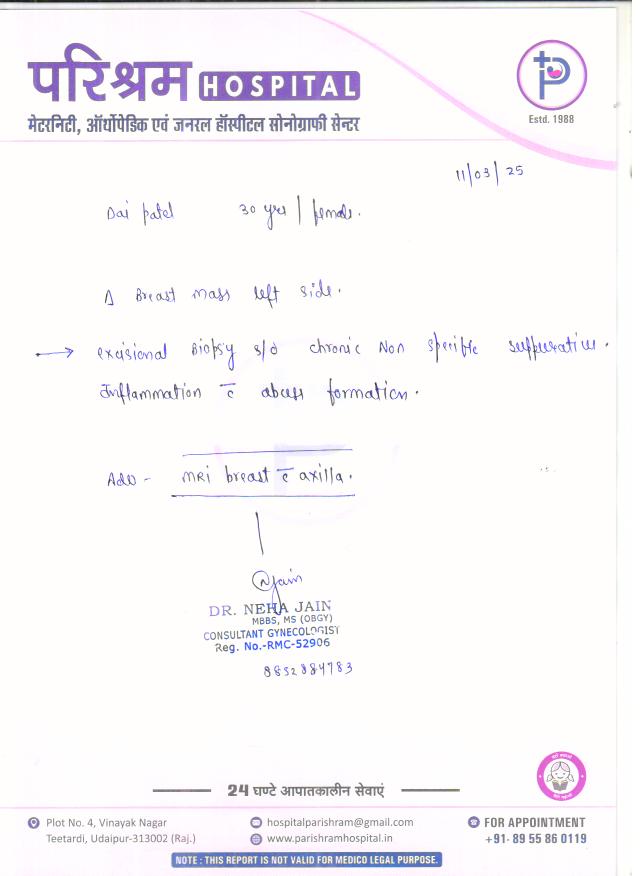 परिश्रम HOSPITAL
मेटरनिटी, ऑर्थोपेडिक एवं जनरल हॉस्पीटल सोनोग्राफी सेन्टर
Estd. 1988
11/03/25
Dai patel 30 yrs / female.
Δ Breast mass left side.
→ excisional Biopsy s/o chronic Non specific suppurative.
Inflammation c̄ abcess formation.
Adv - MRI breast c̄ axilla.
DR. NEHA JAIN
MBBS, MS (OBGY)
CONSULTANT GYNECOLOGIST
Reg. No.-RMC-52906
8852884783
24 घण्टे आपातकालीन सेवाएं
Plot No. 4, Vinayak Nagar
Teetardi, Udaipur-313002 (Raj.)
hospitalparishram@gmail.com
www.parishramhospital.in
FOR APPOINTMENT
+91- 89 55 86 0119
NOTE : THIS REPORT IS NOT VALID FOR MEDICO LEGAL PURPOSE.